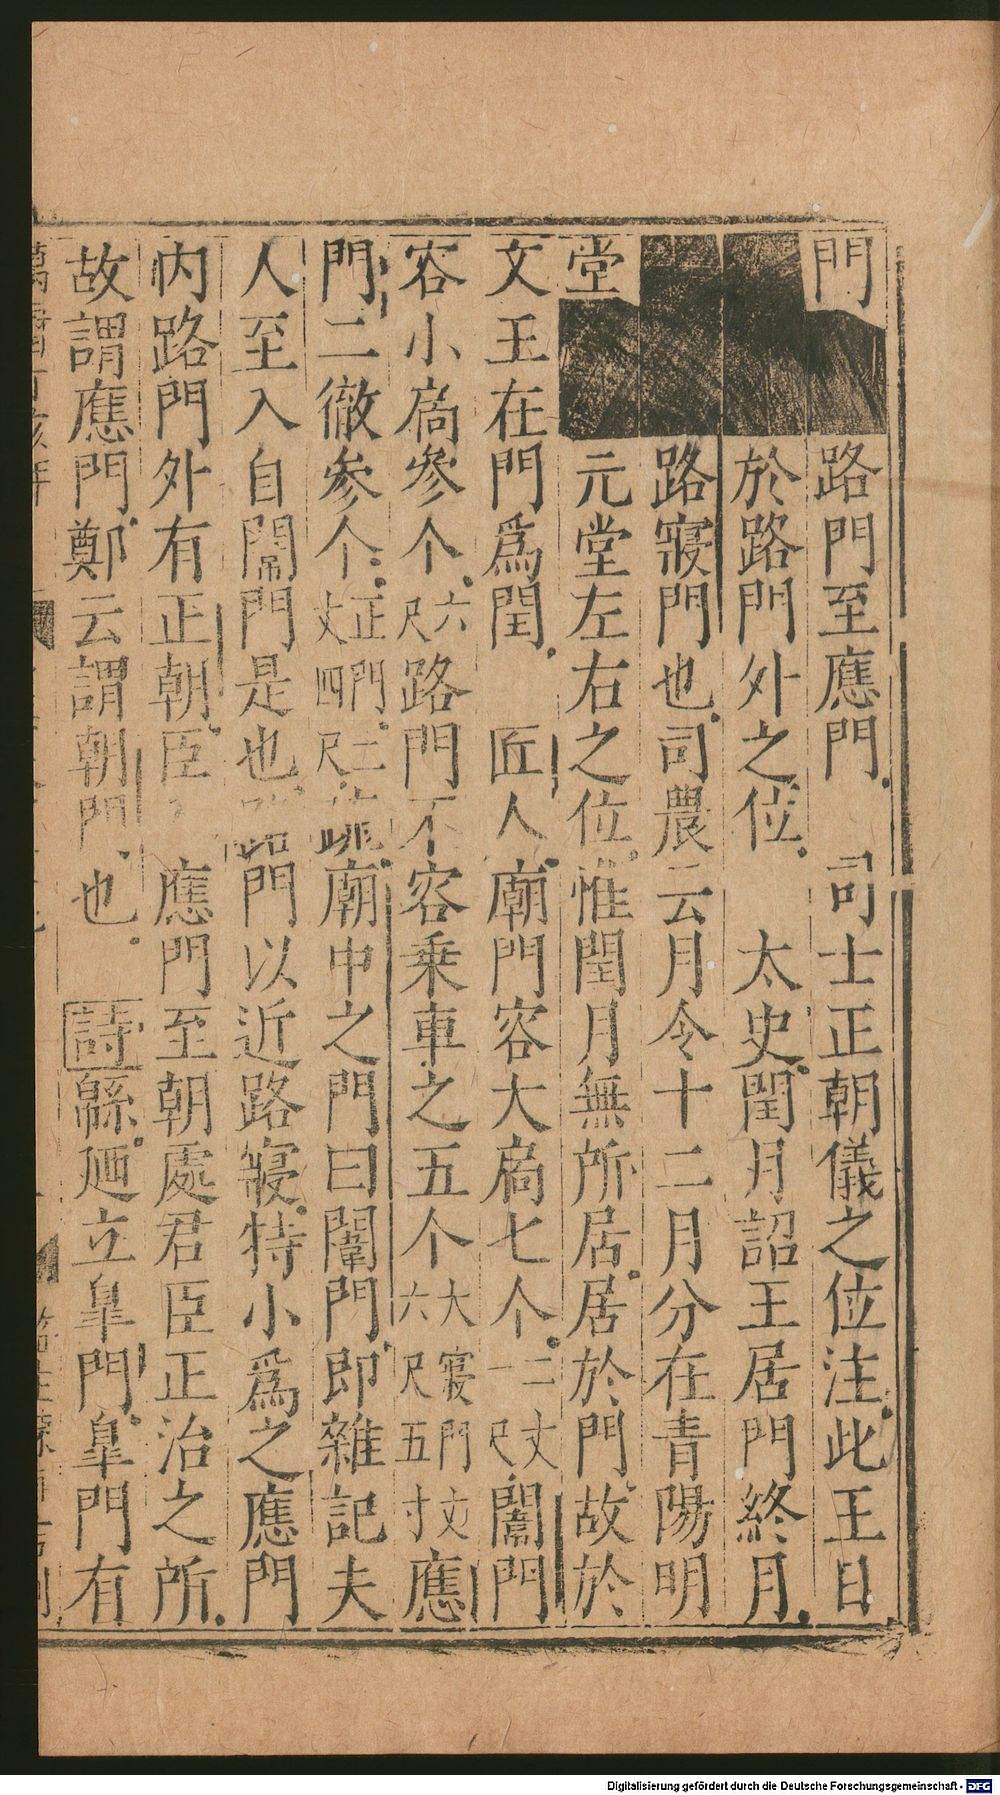 門 路門至應門 司士正朝儀之位注此王日
於路門外之位 太史閏月詔王居門終月
路寢門也司農云月令十二月分在青陽明
堂 元堂左右之位惟閏月無所居居於門故於
文王在門爲閏 匠人廟門容大扃七个二丈一尺闈門
容小扃參个六尺路門不容乗車之五个大寢門丈六尺五寸應
門二徹參个正門二丈四尺 廟中之門曰闈門即雜記夫
人至入自闈門是也路門以近路寢特小爲之應門
内路門外有正朝臣 應門至朝處君臣正治之所
故謂應門鄭云謂朝門也 詩緜廼立臯門臯門有
Digitalisierung gefördert durch die Deutsche Forschungsgemeinschaft - DFG